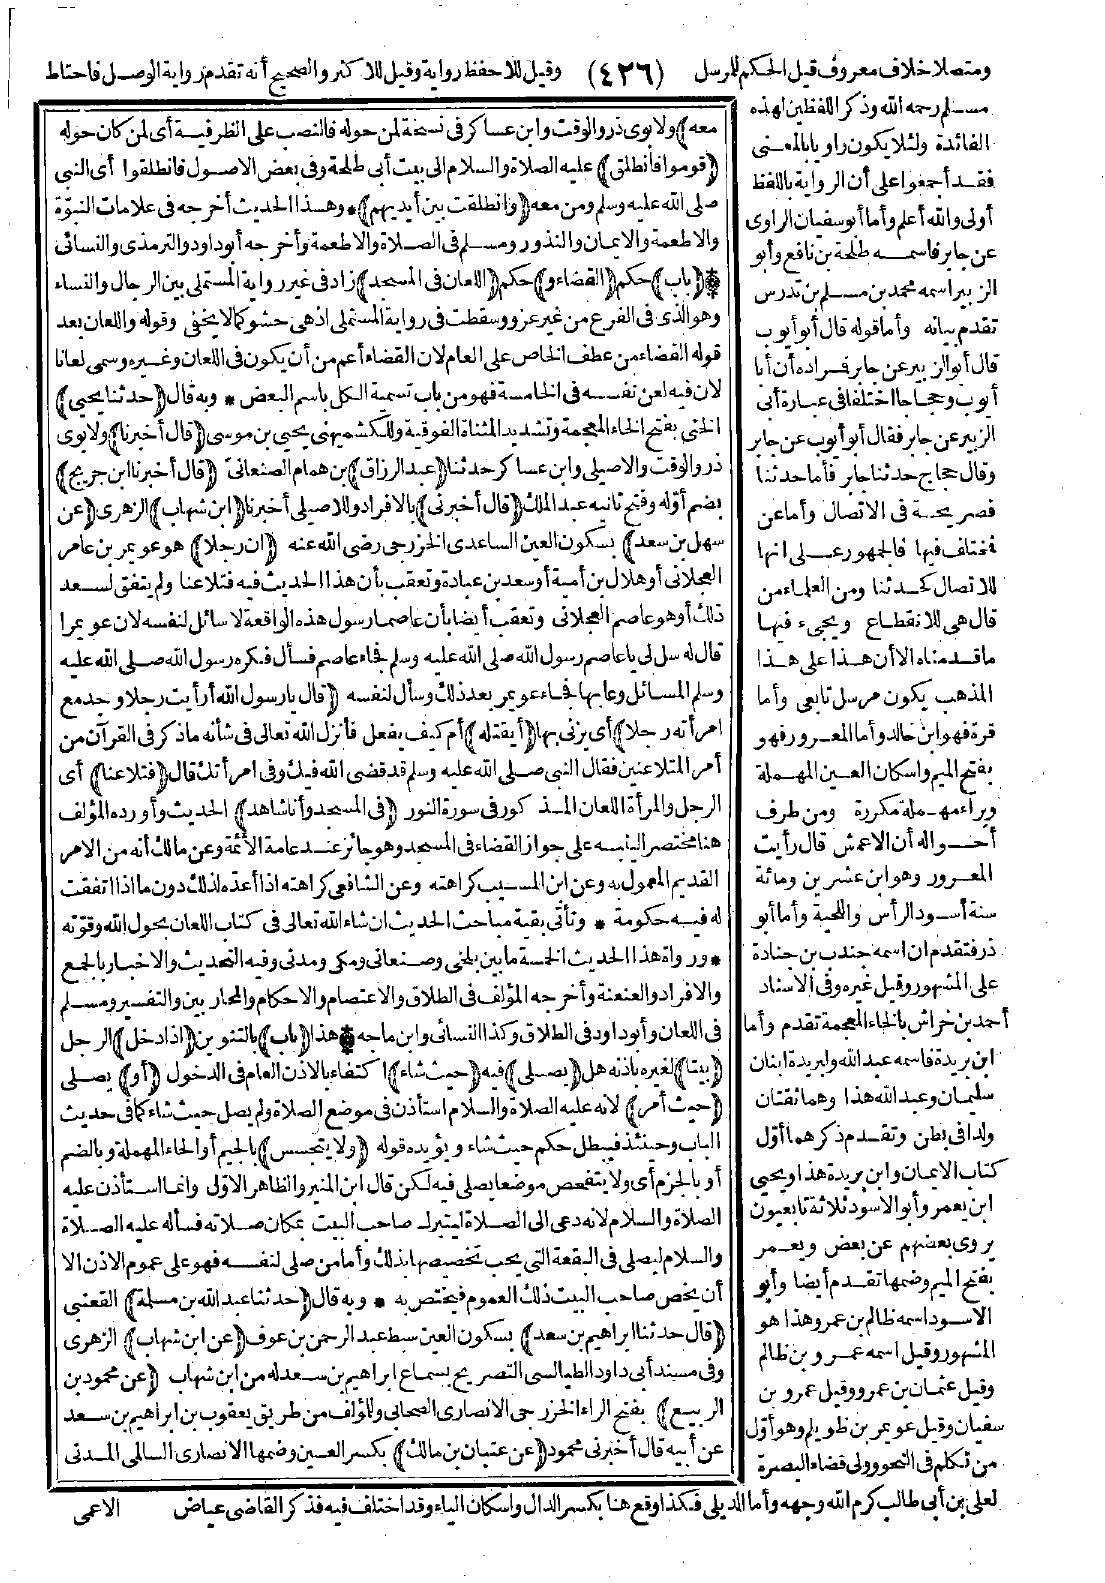 ومتصلا خلاف معروف قيل الحكم للمرسل (٤٢٦) وقيل للاحفظ رواية وقيل للاكثر والصحيح أنه تقدم رواية الوصل فاحتاط
مسلم رحمه الله وذكر اللفظين لهذه
الفائدة ولئلا يكون راويا بالمعنى
فقد أجمعوا على أن الرواية باللفظ
أولى والله أعلم وأما أبو سفيان الراوى
عن جابر فاسمه طلحة بن نافع وأبو
الزبير اسمه محمد بن مسلم بن تدرس
تقدم بيانه وأما قوله قال أبو أيوب
قال أبو الزبير عن جابر فراده أن أبا
أيوب وحجاجا اختلفا فى عبارة أبى
الزبير عن جابر فقال أبو أيوب عن جابر
وقال حجاج حدثنا جابر فأما حدثنا
فصريحة فى الاتصال وأما عن
فختلف فيها فالجمهور على انها
للاتصال كحدثنا ومن العلماء من
قال هى للانقطاع ويجىء فيها
ما قدمناه الا أن هذا على هذا
المذهب يكون مرسل تابعى وأما
قرة فهو ابن خالد وأما المعرور فهو
بفتح الميم واسكان العين المهملة
وبراء مهملة مكررة ومن طرف
أحواله أن الاعمش قال رأيت
المعرور وهو ابن عشرين ومائة
سنة أسود الرأس واللحية وأما أبو
ذر فتقدم ان اسمه جندب بن جنادة
على المشهور وقيل غيره وفى الاسناد
أحمد بن خراش بالخاء المعجمة تقدم وأما
ابن بريدة فاسمه عبد الله ولبريدة ابنان
سليمان وعبد الله هذا وهما ثقتان
ولدا فى بطن وتقدم ذكرهما أول
كتاب الايمان وابن بريدة هذا ويحيى
ابن يعمر وأبو الاسود ثلاثة تابعيون
يروى بعضهم عن بعض ويعمر
بفتح الميم وضمها تقدم أيضا وأبو
الاسود اسمه ظالم بن عمرو هذا هو
المشهور وقيل اسمه عمرو بن ظالم
وقيل عثمان بن عمرو وقيل عمرو بن
سفيان وقيل عويمر بن ظويلم وهو أول
من تكلم فى النحو وولى قضاء البصرة
معه) ولابوى ذر والوقت وابن عساكر فى نسخة لمن حوله فالنصب على الظرفية أى لمن كان حوله
(قوموا فانطلق) عليه الصلاة والسلام الى بيت أبى طلحة وفى بعض الاصول فانطلقوا أى النبى
صلى الله عليه وسلم ومن معه (وانطلقت بين أيديهم) * وهذا الحديث أخرجه فى علامات النبوّة
والاطعمة والايمان والنذور ومسلم فى الصلاة والاطعمة وأخرجه أبو داود والترمذى والنسائى
* (باب) حكم (القضاء و) حكم (اللعان فى المسجد) زاد فى غير رواية المستملى بين الرجال والنساء
وهو الذى فى الفرع من غير عزو وسقطت فى رواية المستملى اذ هى حشو كما لا يخفى وقوله واللعان بعد
قوله القضاء من عطف الخاص على العام لان القضاء أعم من أن يكون فى اللعان وغيره وسمى لعانا
لان فيه لعن نفسه فى الخامسة فهو من باب تسمية الكل باسم البعض * وبه قال (حدثنا يحيى)
الختى بفتح الخاء المعجمة وتشديد المثناة الفوقية وللكشميهنى يحيى بن موسى (قال أخبرنا) ولابوى
ذر والوقت والاصيلى وابن عساكر حدثنا (عبد الرزاق) بن همام الصنعانى (قال أخبرنا ابن جريج)
بضم أوله وفتح ثانيه عبد الملك (قال أخبرنى) بالافراد وللاصيلى أخبرنا (ابن شهاب) الزهرى (عن
سهل بن سعد) بسكون العين الساعدى الخزرجى رضى الله عنه (ان رجلا) هو عويمر بن عامر
العجلانى أو هلال بن أمية أو سعد بن عبادة وتعقب بأن هذا الحديث فيه فتلاعنا ولم يتفق لسعد
ذلك أو هو عاصم العجلانى وتعقب أيضا بأن عاصما رسول هذه الواقعة لا سائل لنفسه لان عويمرا
قال له سل لى يا عاصم رسول الله صلى الله عليه وسلم فجاء عاصم فسأل فكره رسول الله صلى الله عليه
وسلم المسائل وعابها فجاء عويمر بعد ذلك وسأل لنفسه (قال يا رسول الله أرأيت رجلا وجد مع
امرأته رجلا) أى يزنى بها (أيقتله) أم كيف يفعل فأنزل الله تعالى فى شأنه ما ذكر فى القرآن من
أمر المتلاعنين فقال النبى صلى الله عليه وسلم قد قضى الله فيك وفى امرأتك قال (فتلاعنا) أى
الرجل والمرأة اللعان المذكور فى سورة النور (فى المسجد وأنا شاهد) الحديث وأورده المؤلف
هنا مختصرا لينبه على جواز القضاء فى المسجد وهو جائز عند عامة الأئمة وعن مالك أنه من الامر
القديم المعمول به وعن ابن المسيب كراهته وعن الشافعى كراهته اذا أعده لذلك دون ما اذا اتفقت
له فيه حكومة * وتأتى بقية مباحث الحديث ان شاء الله تعالى فى كتاب اللعان بحول الله وقوته
* ورواة هذا الحديث الخمسة ما بين بلخى وصنعانى ومكى ومدنى وفيه التحديث والاخبار بالجمع
والافراد والعنعنة وأخرجه المؤلف فى الطلاق والاعتصام والاحكام والمحاربين والتفسير ومسلم
فى اللعان وأبو داود فى الطلاق وكذا النسائى وابن ماجه * هذا (باب) بالتنوين (اذا دخل) الرجل
(بيتا) لغيره باذنه هل (يصلى) فيه (حيث شاء) اكتفاء بالاذن العام فى الدخول (أو) يصلى
(حيث أمر) لانه عليه الصلاة والسلام استأذن فى موضع الصلاة ولم يصل حيث شاء كما فى حديث
الباب وحينئذ فيبطل حكم حيث شاء ويؤيده قوله (ولا يتجسس) بالجيم أو الحاء المهملة وبالضم
أو بالجزم أى ولا يتفحص موضعا يصلى فيه لكن قال ابن المنير والظاهر الاوّل وانما استأذن عليه
الصلاة والسلام لانه دعى الى الصلاة ليتبرك صاحب البيت بمكان صلاته فسأله عليه الصلاة
والسلام ليصلى فى البقعة التى يحب تخصيصها بذلك وأما من صلى لنفسه فهو على عموم الاذن الا
أن يخص صاحب البيت ذلك العموم فيختص به * وبه قال (حدثنا عبد الله بن مسلمة) القعنبى
(قال حدثنا ابراهيم بن سعد) بسكون العين سبط عبد الرحمن بن عوف (عن ابن شهاب) الزهرى
وفى مسند أبى داود الطيالسى التصريح بسماع ابراهيم بن سعد له من ابن شهاب (عن محمود بن
الربيع) بفتح الراء الخزرجى الانصارى الصحابى وللمؤلف من طريق يعقوب بن ابراهيم بن سعد
عن أبيه قال أخبرنى محمود (عن عتبان بن مالك) بكسر العين وضمها الانصارى السالمى المدنى
لعلى بن أبى طالب كرم الله وجهه وأما الديلى فكذا وقع هنا بكسر الدال واسكان الياء وقد اختلف فيه فذكر القاضى عياض الاعمى